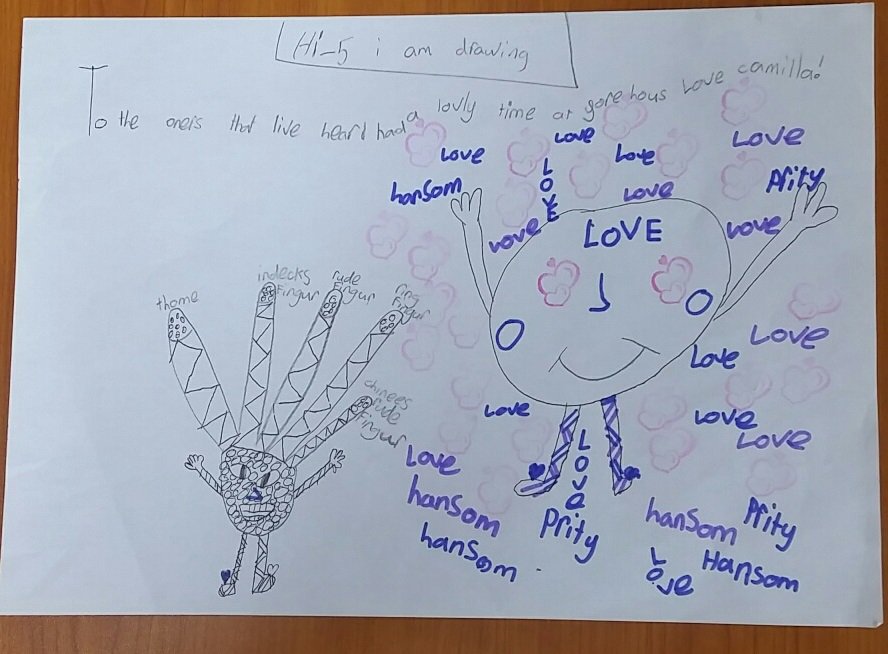 Hi-5 i am drawing
To the oners that live heard had a lovly time at gorehous Love camilla!
Love
Love
Love
Love
hansom
LOVE
Love
Prity
Love
LOVE
Love
thome
indecks
Fingur
rude
Fingur
ring
Fingur
chinees
rude
Fingur
Love
Love
Love
Love
Love
Love
Love
hansom
hansom
Love
Prity
hansom
Prity
Love
Hansom